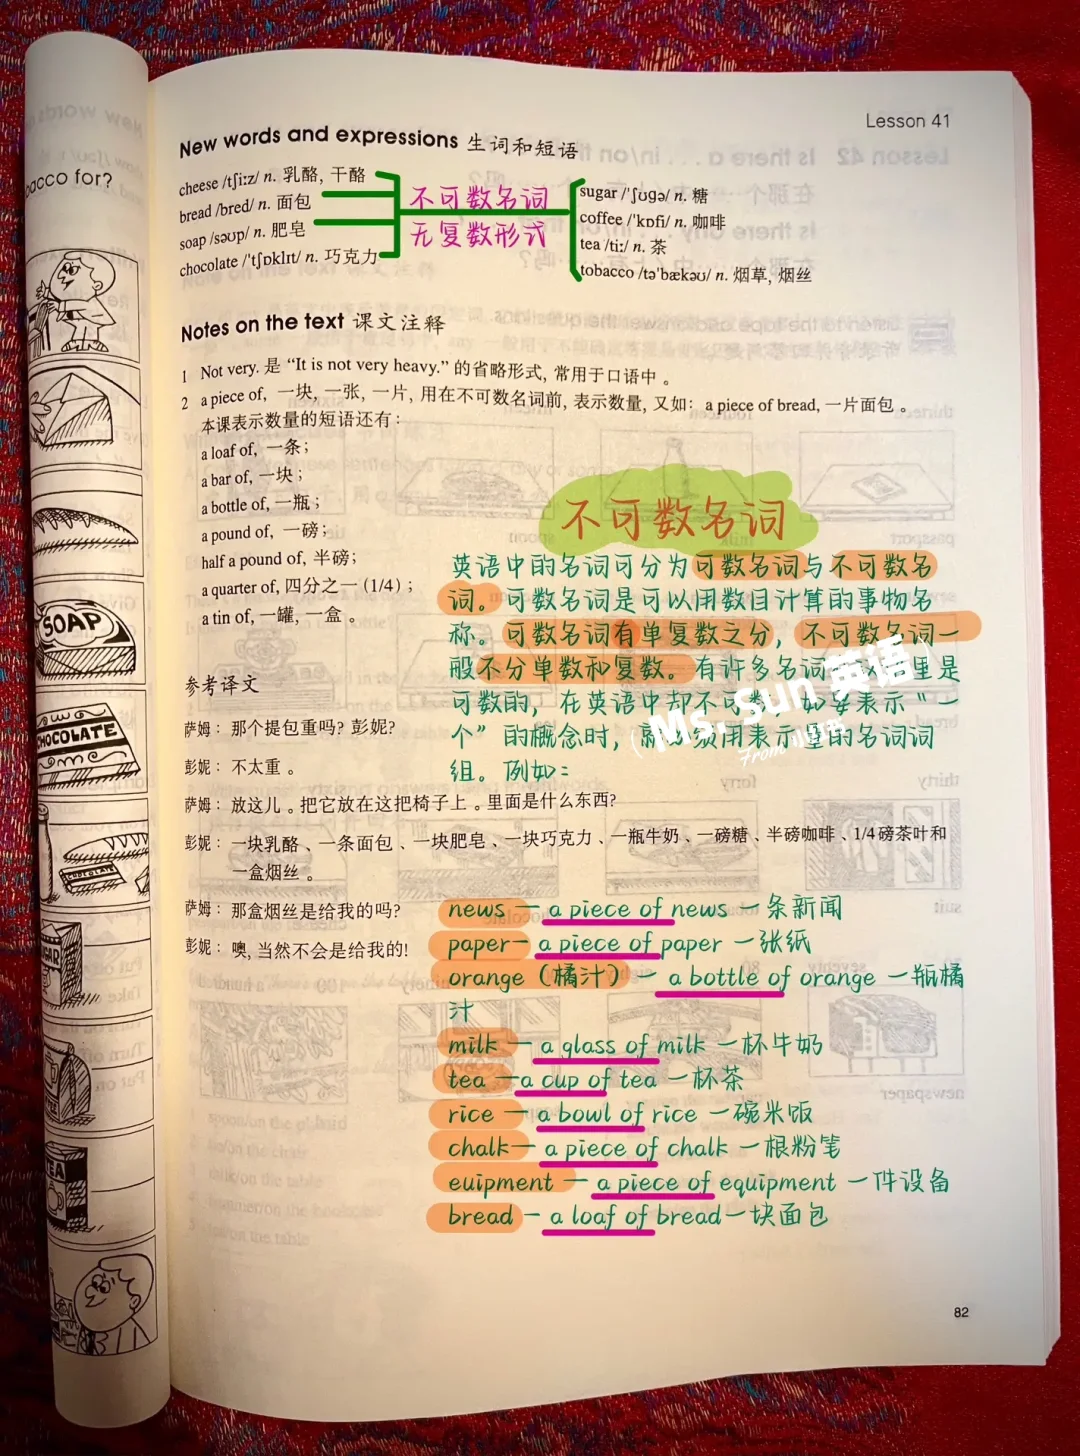 Lesson 41
New words and expressions 生词和短语
cheese /tʃiːz/ n. 乳酪, 干酪
bread /bred/ n. 面包
soap /səʊp/ n. 肥皂
chocolate /'tʃɒklɪt/ n. 巧克力
不可数名词
无复数形式
sugar /'ʃʊgə/ n. 糖
coffee /'kɒfi/ n. 咖啡
tea /tiː/ n. 茶
tobacco /tə'bækəʊ/ n. 烟草, 烟丝
Notes on the text 课文注释
1 Not very. 是 “It is not very heavy.” 的省略形式, 常用于口语中。
2 a piece of, 一块, 一张, 一片, 用在不可数名词前, 表示数量, 又如: a piece of bread, 一片面包。
本课表示数量的短语还有:
a loaf of, 一条;
a bar of, 一块;
a bottle of, 一瓶;
a pound of, 一磅;
half a pound of, 半磅;
a quarter of, 四分之一 (1/4);
a tin of, 一罐, 一盒。
参考译文
萨姆: 那个提包重吗? 彭妮?
彭妮: 不太重。
萨姆: 放这儿。把它放在这把椅子上。里面是什么东西?
彭妮: 一块乳酪、一条面包、一块肥皂、一块巧克力、一瓶牛奶、一磅糖、半磅咖啡、1/4磅茶叶和
一盒烟丝。
萨姆: 那盒烟丝是给我的吗?
彭妮: 噢, 当然不会是给我的!
不可数名词
英语中的名词可分为可数名词与不可数名
词。可数名词是可以用数目计算的事物名
称。可数名词有单复数之分，不可数名词一
般不分单数和复数。有许多名词
里是
可数的，在英语中却不可
如要表示“一
个”的概念时，
须用表示量的名词词
组。例如：
Ms. Sun 英语
From 小
news — a piece of news 一条新闻
paper— a piece of paper 一张纸
orange（橘汁）— a bottle of orange 一瓶橘
汁
milk — a glass of milk 一杯牛奶
tea —a cup of tea 一杯茶
rice — a bowl of rice 一碗米饭
chalk— a piece of chalk 一根粉笔
euipment — a piece of equipment 一件设备
bread — a loaf of bread一块面包
82
acco for?
SOAP
CHOCOLATE
CHOCOLATE
SUGAR
TEA